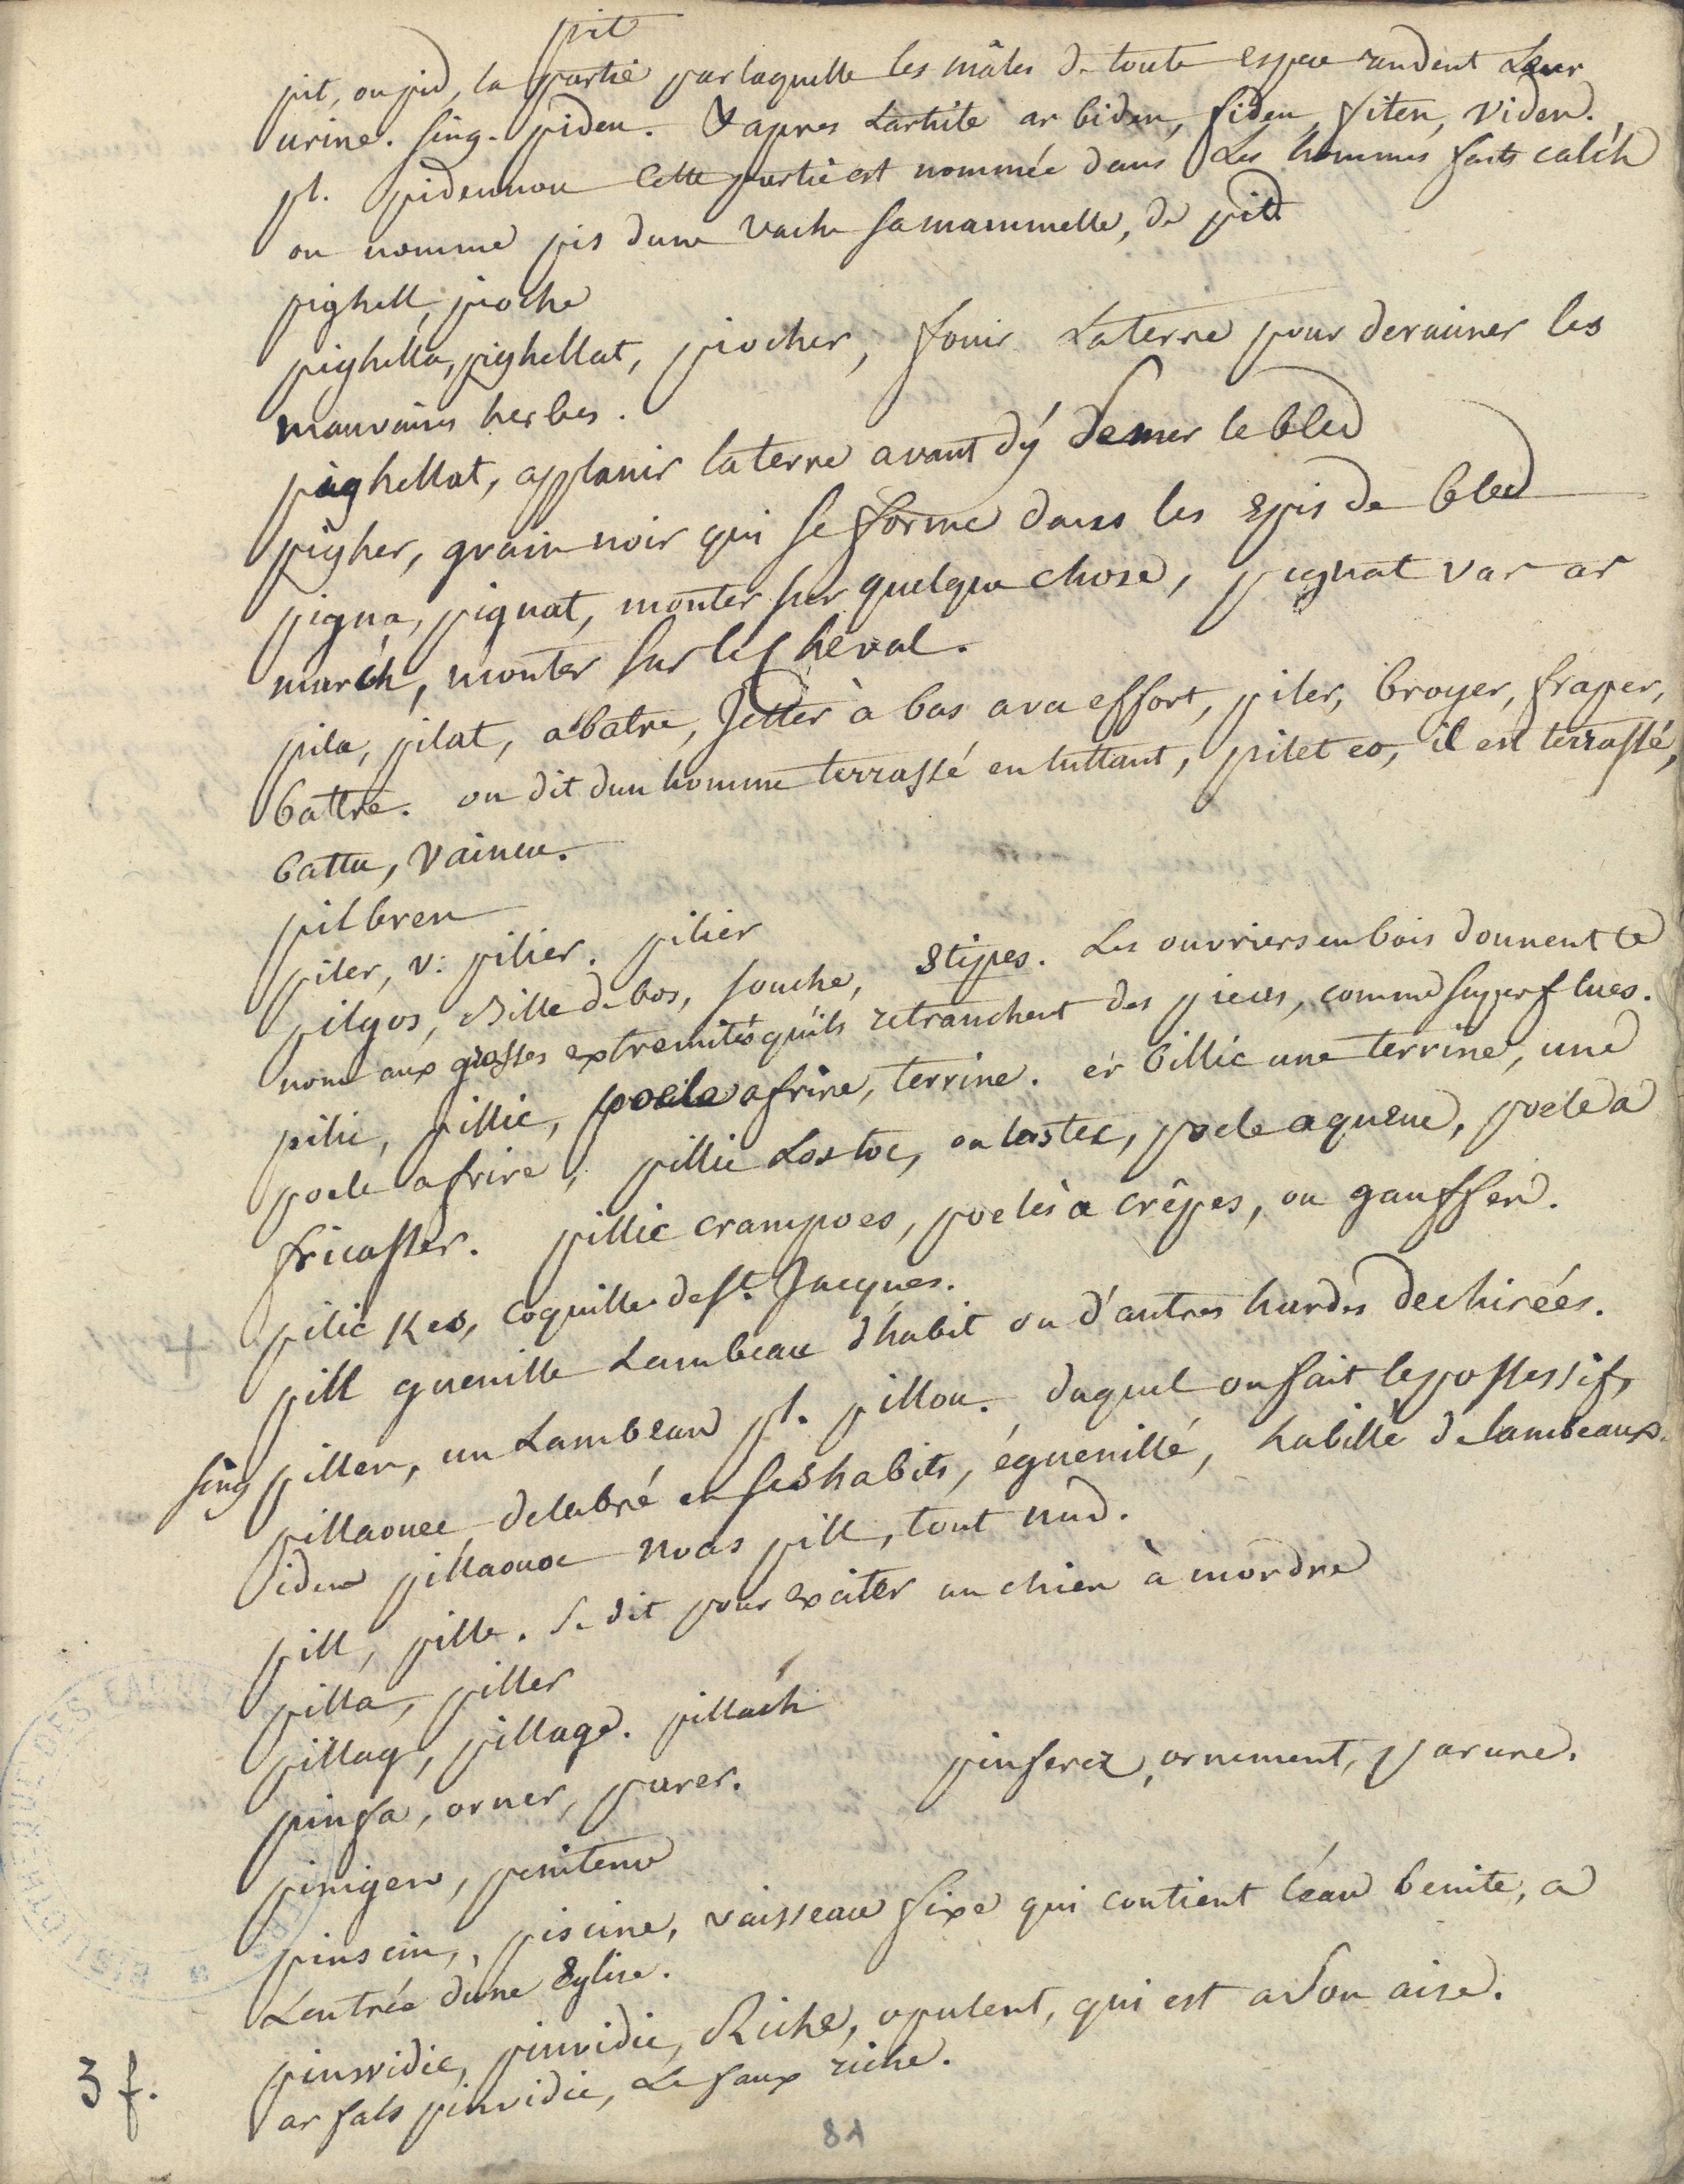 pit
pit, ou pid, la partie par laquelle les mâles de toute espece rendent Leur
urine. sing. piden. & apres L'article ar biden, fiden, fiten, viden.
pl. pidennou Cette partie est nommée dans Les hommes faits calc'h
on nomme pis dune vache sa mammelle, de pid
pighell, pioche
pighella, pighellat, piocher, fouir La terre pour deraciner les
mauvaises herbes.
pighellat, applanir la terre avant d'y semer le bled
pigher, grain noir qui se forme dans les epis de bled
pigna, pignat, monter sur quelque chose, pignat var ar
march, monter sur le cheval.
pila, pilat, abatre, Jetter à bas avec effort, piler, broyer, fraper,
battre. on dit dun homme terrassé en luttant, pilet eo, il est terrassé,
battu, vaincu.
pilbren
piler, v: pilier. pilier
pilgos, Bille de bos, souche, stipes. Les ouvriers en bois donnent ce
nom aux grosses extremités qu'ils retranchent des pieces, comme superflues.
pilic, pillic, poele a frire, terrine. er billic une terrine, une
poele a frire, pillic Lostoc, ou lostec, poele a queue, poele a
fricasser. pillic crampoes, poele à crêpes, ou gauffer.
pilic Kes, coquille de St. Jacques.
pill guenille Lambeau d'habit ou d'autres hardes dechirées.
sing pillen, un Lambeau pl. pillou. duquel on fait le possessif,
pillaouec delabré en ses habits, éguenillé, habillé de lambeaux.
idem pillaouoc noas pill, tout nud.
pill, pille. se dit pour exciter un chien à mordre
pilla, piller
pillag, pillage. pillach
pinfa, orner, parer. pinferez, ornement, parure.
pinigen, penitence
pinscin, piscine, vaisseau fixe qui contient l'eau benite, a
L'entrée d'une Eglise.
pinvidic, pinvidic, Riche, opulent, qui est a son aise.
ar fals pinvidic, Le faux riche.
3 f.
81